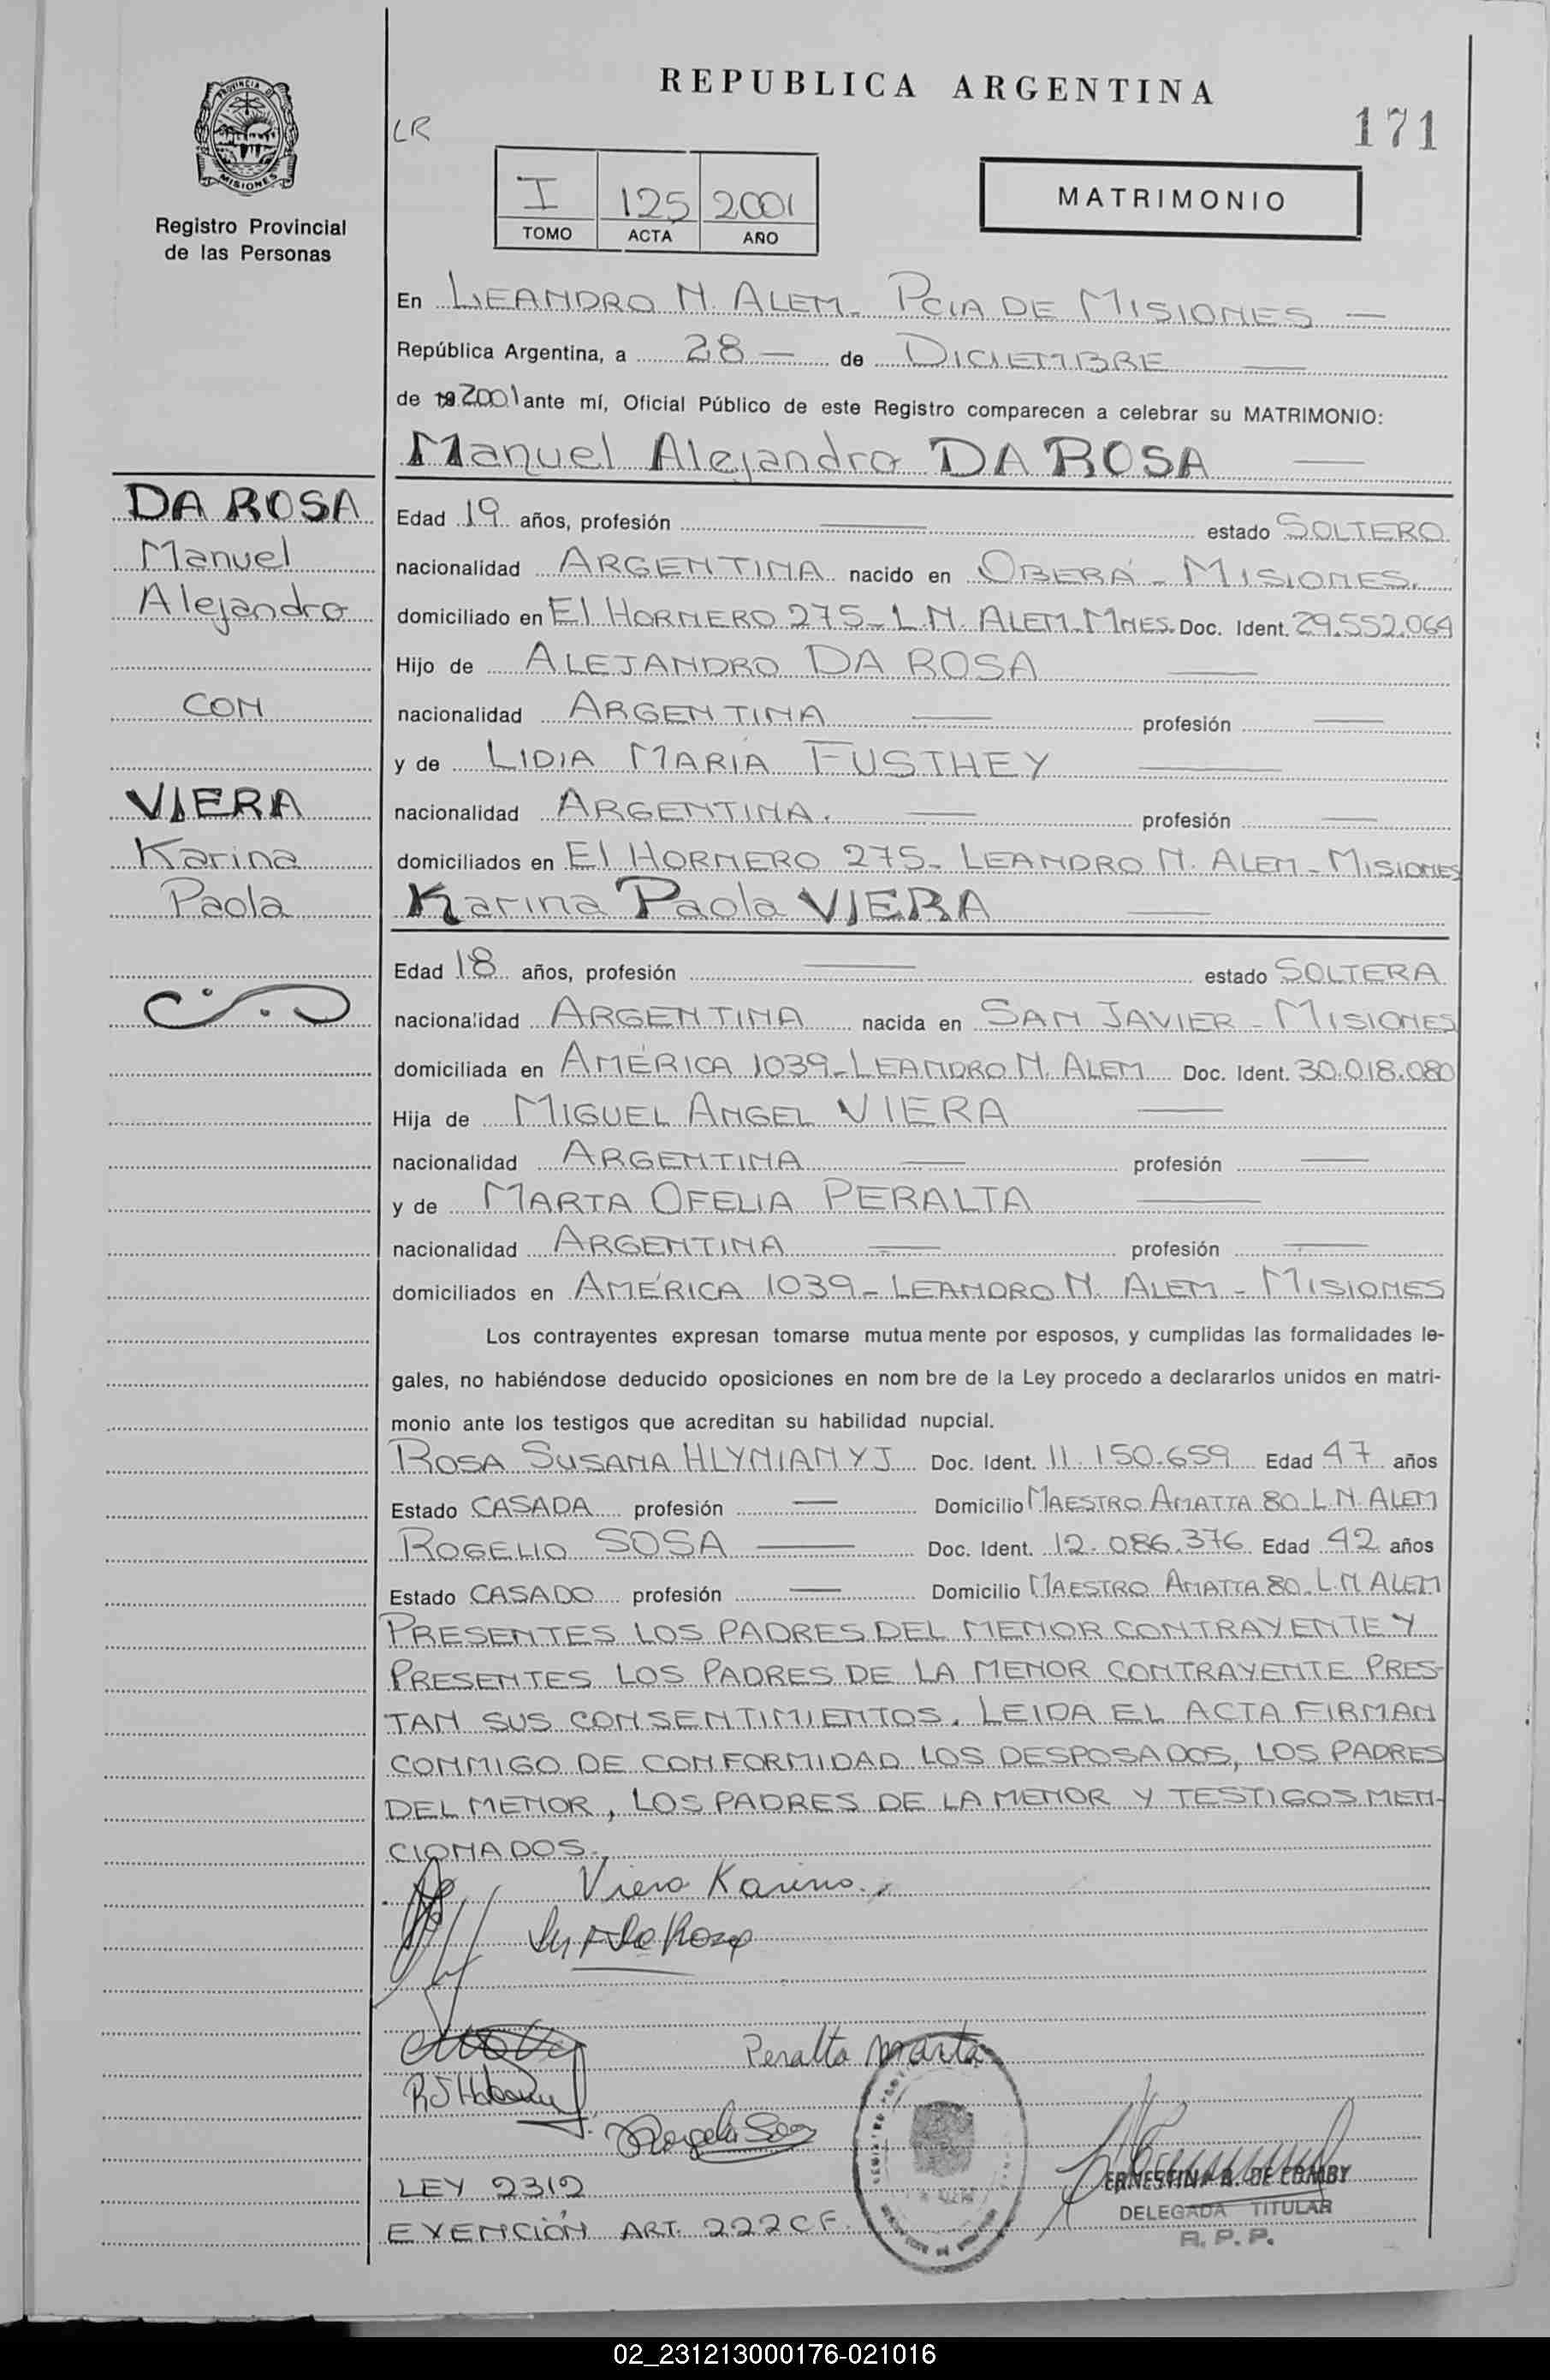 REPUBLICA ARGENTINA
171
LR
PROVINCIA DE
MISIONES
Registro Provincial
de las Personas
I 125 2001
TOMO ACTA AÑO
MATRIMONIO
En LEANDRO N. ALEM- PCIA DE MISIONES —
República Argentina, a 28 — de DICIEMBRE —
de 19 2001 ante mí, Oficial Público de este Registro comparecen a celebrar su MATRIMONIO:
Manuel Alejandro DA ROSA —
DA ROSA
Manuel
Alejandro
CON
VIERA
Karina
Paola
Edad 19 años, profesión — estado SOLTERO
nacionalidad ARGENTINA nacido en OBERÁ - MISIONES.
domiciliado en El HORNERO 275- L.N. ALEM-MNES. Doc. Ident. 29.552.064
Hijo de ALEJANDRO DA ROSA —
nacionalidad ARGENTINA — profesión —
y de LIDIA MARIA FUSTHEY —
nacionalidad ARGENTINA. — profesión —
domiciliados en El HORNERO 275- LEANDRO N. ALEM - MISIONES
Karina Paola VIERA —
Edad 18 años, profesión — estado SOLTERA
nacionalidad ARGENTINA nacida en SAN JAVIER - MISIONES
domiciliada en AMÉRICA 1039-LEANDRO N. ALEM Doc. Ident. 30.018.080
Hija de MIGUEL ANGEL VIERA —
nacionalidad ARGENTINA — profesión —
y de MARTA OFELIA PERALTA —
nacionalidad ARGENTINA — profesión —
domiciliados en AMÉRICA 1039- LEANDRO N. ALEM - MISIONES
Los contrayentes expresan tomarse mutua mente por esposos, y cumplidas las formalidades le-
gales, no habiéndose deducido oposiciones en nom bre de la Ley procedo a declararlos unidos en matri-
monio ante los testigos que acreditan su habilidad nupcial.
ROSA SUSANA HLYNIANYJ Doc. Ident. 11.150.659 Edad 47 años
Estado CASADA profesión — Domicilio MAESTRO AMATTA 80 L.N. ALEM
ROGELIO SOSA — Doc. Ident. 12.086.376 Edad 42 años
Estado CASADO profesión — Domicilio MAESTRO AMATTA 80. L.N ALEM
PRESENTES LOS PADRES DEL MENOR CONTRAYENTE Y
PRESENTES LOS PADRES DE LA MENOR CONTRAYENTE PRES-
TAN SUS CONSENTIMIENTOS. LEIDA EL ACTA FIRMAN
CONMIGO DE CONFORMIDAD LOS DESPOSADOS, LOS PADRES
DEL MENOR, LOS PADRES DE LA MENOR Y TESTIGOS MEN-
CIONADOS.
Viera Karina.
Da Rosa
Peralta Marta
Rogelio Sosa
LEY 2312
EXENCIÓN ART. 222 C F.
ERNESTINA R. DE
DELEGADA TITULAR
R. P. P.
02_231213000176-021016